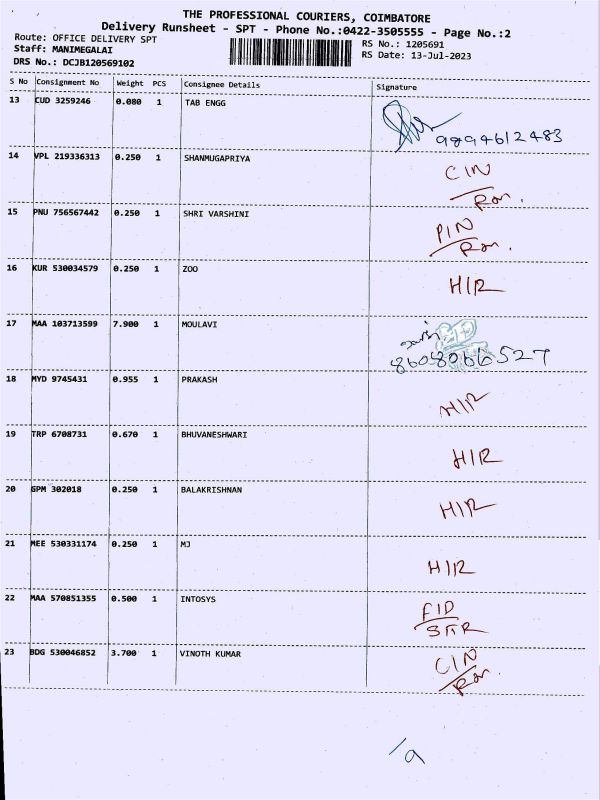 THE PROFESSIONAL COURIERS, COIMBATORE
Delivery Runsheet - SPT - Phone No.:0422-3505555 - Page No.:2
Route: OFFICE DELIVERY SPT
RS No.: 1205691
Staff: MANIMEGALAI
RS Date: 13-Jul-2023
DRS No.: DCJB120569102
S No Consignment No Weight PCS Consignee Details Signature
13 CUD 3259246 0.080 1 TAB ENGG
9894612483
14 VPL 219336313 0.250 1 SHANMUGAPRIYA
CIN
15 PNU 756567442 0.250 1 SHRI VARSHINI
PIN
16 KUR 530034579 0.250 1 ZOO
H/R
17 MAA 103713599 7.900 1 MOULAVI
8608066527
18 MYD 9745431 0.955 1 PRAKASH
H/R
19 TRP 6708731 0.670 1 BHUVANESHWARI
H/R
20 GPM 302018 0.250 1 BALAKRISHNAN
H/R
21 MEE 530331174 0.250 1 MJ
H/R
22 MAA 570851355 0.500 1 INTOSYS
FID
23 BDG 530046852 3.700 1 VINOTH KUMAR
CIN